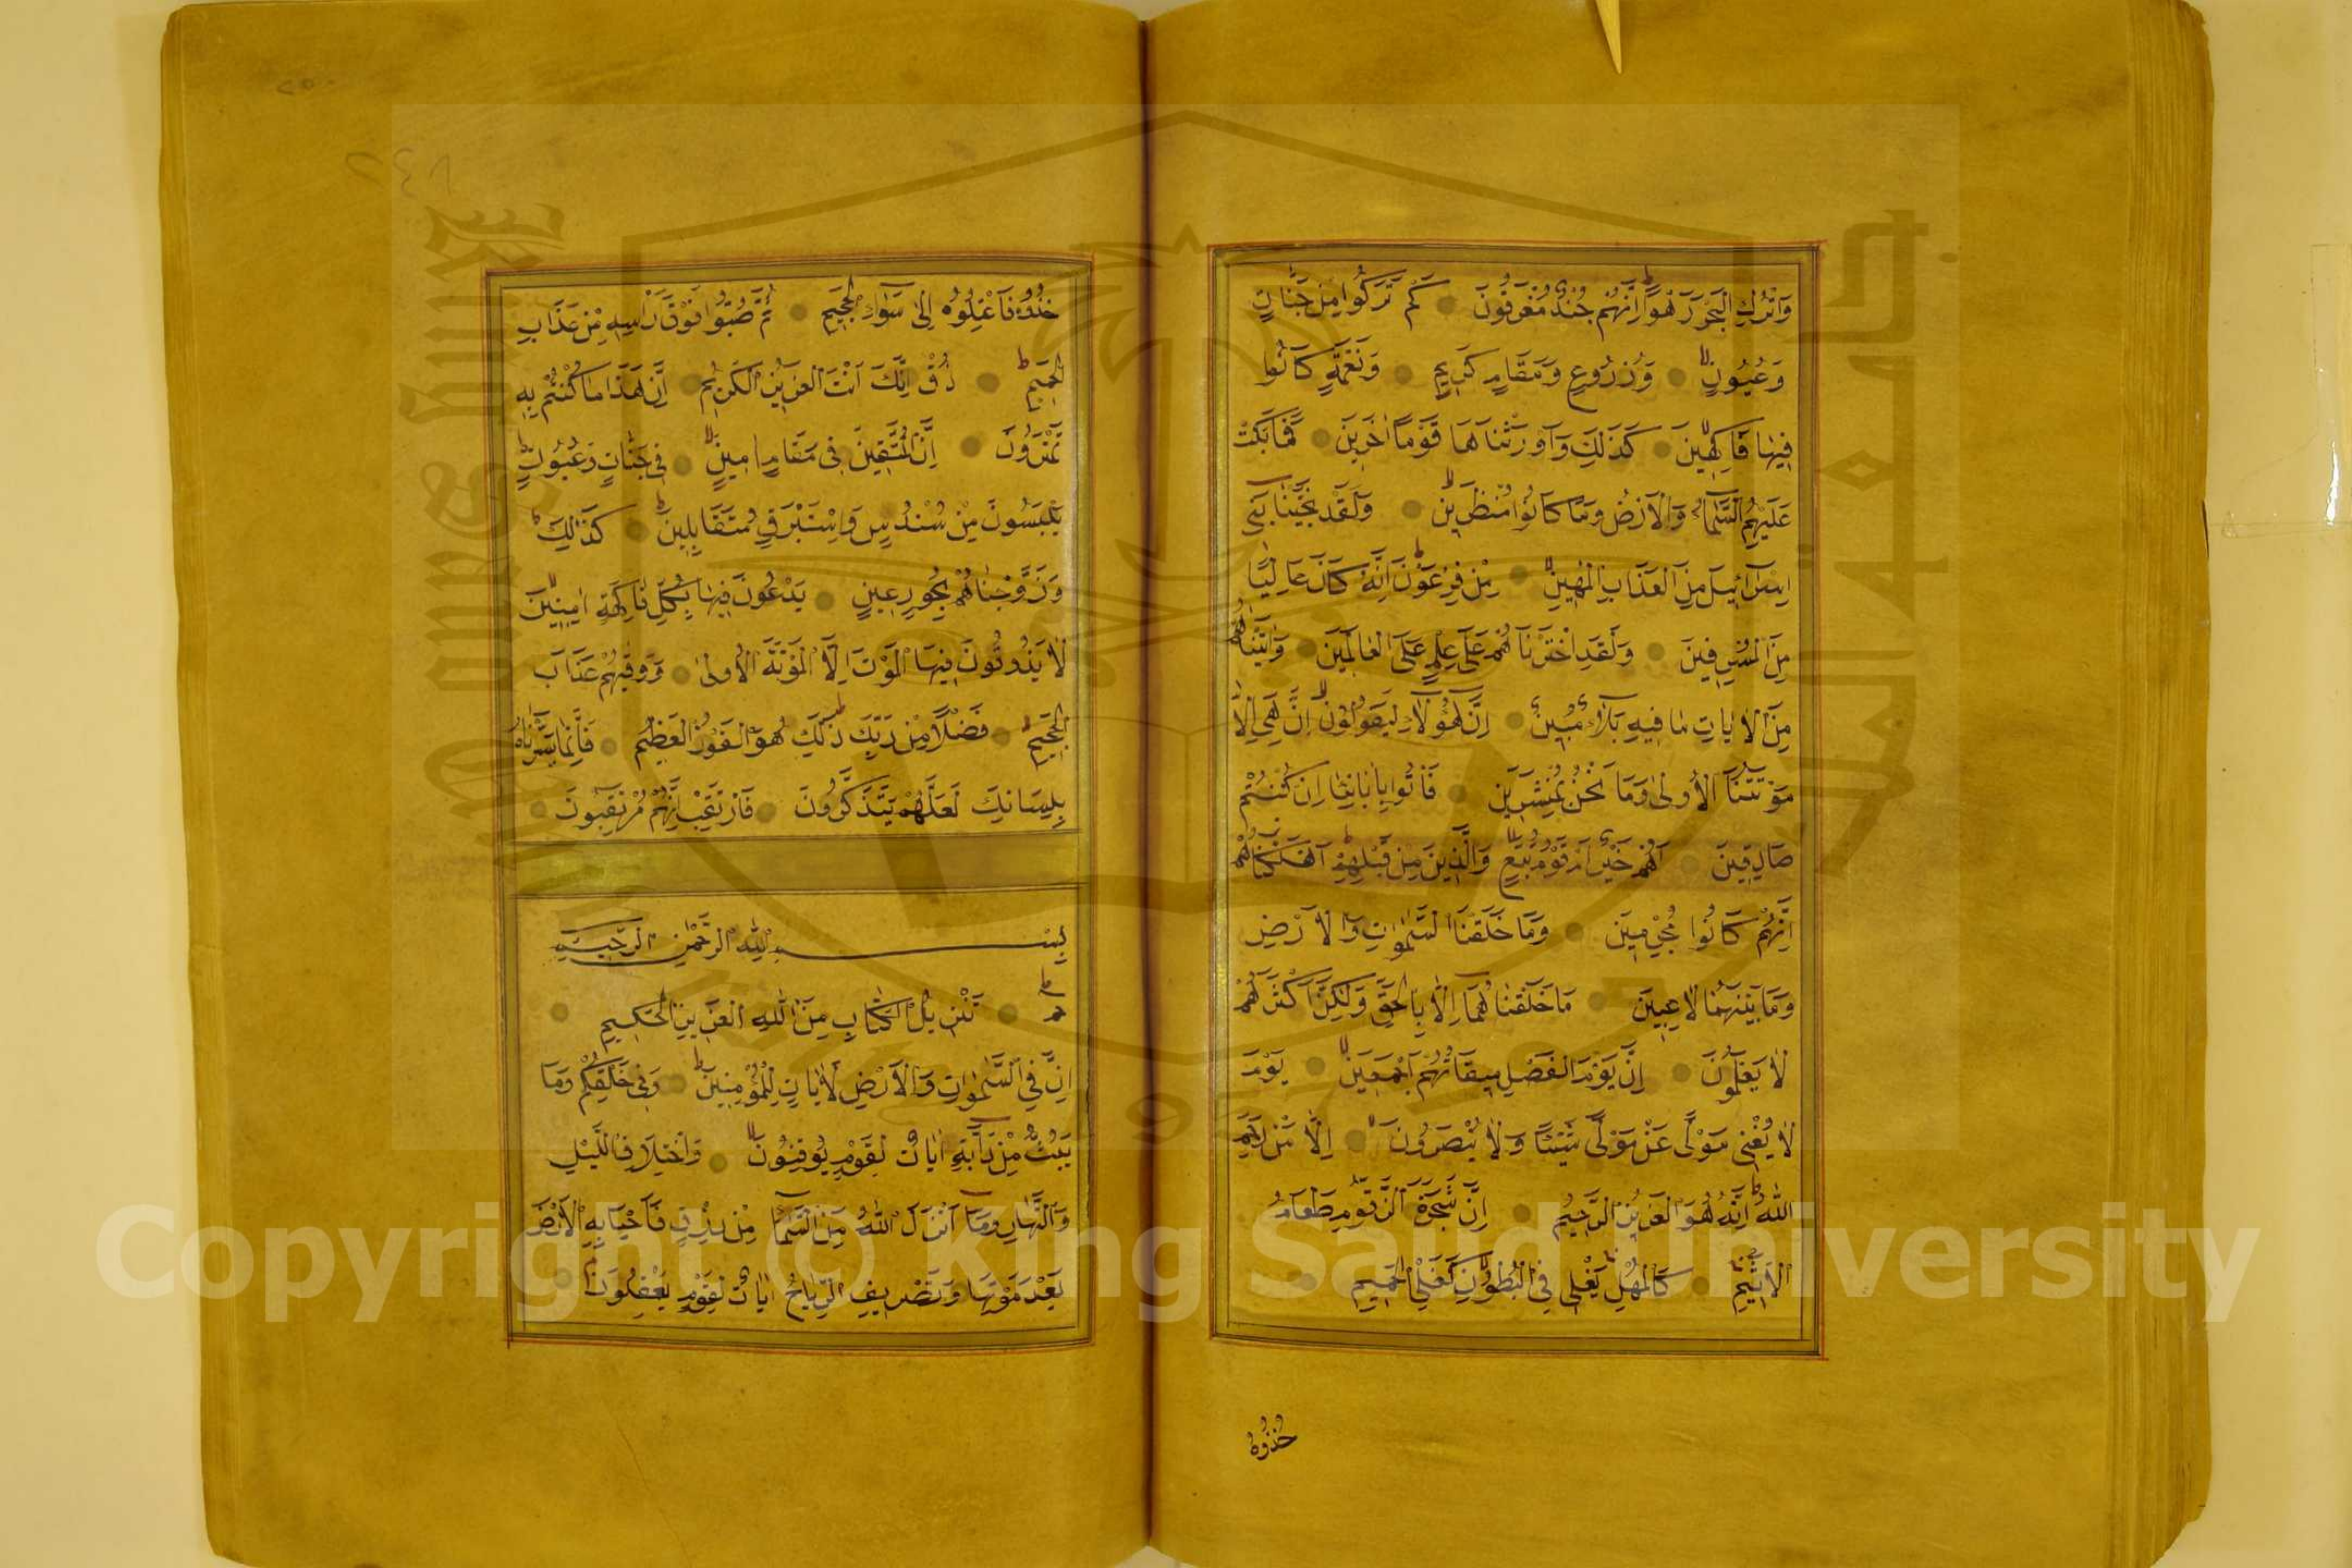 وَاتْرُكِ الْبَحْرَ رَهْوًا اِنَّهُمْ جُنْدٌ مُغْرَقُونَ كَمْ تَرَكُوا مِنْ جَنَّاتٍ
وَعُيُونٍ وَزُرُوعٍ وَمَقَامٍ كَرِيمٍ وَنَعْمَةٍ كَانُوا
فِيهَا فَاكِهِينَ كَذٰلِكَ وَاَوْرَثْنَاهَا قَوْمًا اٰخَرِينَ فَمَا بَكَتْ
عَلَيْهِمُ السَّمَاءُ وَالْاَرْضُ وَمَا كَانُوا مُنْظَرِينَ وَلَقَدْ نَجَّيْنَا بَنِى
اِسْرَائِيلَ مِنَ الْعَذَابِ الْمُهِينِ مِنْ فِرْعَوْنَ اِنَّهُ كَانَ عَالِيًا
مِنَ الْمُسْرِفِينَ وَلَقَدِ اخْتَرْنَاهُمْ عَلٰى عِلْمٍ عَلَى الْعَالَمِينَ وَاٰتَيْنَاهُمْ
مِنَ الْاٰيَاتِ مَا فِيهِ بَلَاءٌ مُبِينٌ اِنَّ هٰؤُلَاءِ لَيَقُولُونَ اِنْ هِىَ اِلَّا
مَوْتَتُنَا الْاُولٰى وَمَا نَحْنُ بِمُنْشَرِينَ فَأْتُوا بِاٰبَائِنَا اِنْ كُنْتُمْ
صَادِقِينَ اَهُمْ خَيْرٌ اَمْ قَوْمُ تُبَّعٍ وَالَّذِينَ مِنْ قَبْلِهِمْ اَهْلَكْنَاهُمْ
اِنَّهُمْ كَانُوا مُجْرِمِينَ وَمَا خَلَقْنَا السَّمٰوَاتِ وَالْاَرْضَ
وَمَا بَيْنَهُمَا لَاعِبِينَ مَا خَلَقْنَاهُمَا اِلَّا بِالْحَقِّ وَلٰكِنَّ اَكْثَرَهُمْ
لَا يَعْلَمُونَ اِنَّ يَوْمَ الْفَصْلِ مِيقَاتُهُمْ اَجْمَعِينَ يَوْمَ
لَا يُغْنِى مَوْلًى عَنْ مَوْلًى شَيْئًا وَلَا هُمْ يُنْصَرُونَ اِلَّا مَنْ رَحِمَ
اللّٰهُ اِنَّهُ هُوَ الْعَزِيزُ الرَّحِيمُ اِنَّ شَجَرَةَ الزَّقُّومِ طَعَامُ
الْاَثِيمِ كَالْمُهْلِ يَغْلِى فِى الْبُطُونِ كَغَلْىِ الْحَمِيمِ
خُذُوهُ
خُذُوهُ فَاعْتِلُوهُ اِلٰى سَوَاءِ الْجَحِيمِ ثُمَّ صُبُّوا فَوْقَ رَأْسِهِ مِنْ عَذَابِ
الْحَمِيمِ ذُقْ اِنَّكَ اَنْتَ الْعَزِيزُ الْكَرِيمُ اِنَّ هٰذَا مَا كُنْتُمْ بِهِ
تَمْتَرُونَ اِنَّ الْمُتَّقِينَ فِى مَقَامٍ اَمِينٍ فِى جَنَّاتٍ وَعُيُونٍ
يَلْبَسُونَ مِنْ سُنْدُسٍ وَاِسْتَبْرَقٍ مُتَقَابِلِينَ كَذٰلِكَ
وَزَوَّجْنَاهُمْ بِحُورٍ عِينٍ يَدْعُونَ فِيهَا بِكُلِّ فَاكِهَةٍ اٰمِنِينَ
لَا يَذُوقُونَ فِيهَا الْمَوْتَ اِلَّا الْمَوْتَةَ الْاُولٰى وَوَقٰيهُمْ عَذَابَ
الْجَحِيمِ فَضْلًا مِنْ رَبِّكَ ذٰلِكَ هُوَ الْفَوْزُ الْعَظِيمُ فَاِنَّمَا يَسَّرْنَاهُ
بِلِسَانِكَ لَعَلَّهُمْ يَتَذَكَّرُونَ فَارْتَقِبْ اِنَّهُمْ مُرْتَقِبُونَ
بِسْمِ اللّٰهِ الرَّحْمٰنِ الرَّحِيمِ
حٰم تَنْزِيلُ الْكِتَابِ مِنَ اللّٰهِ الْعَزِيزِ الْحَكِيمِ
اِنَّ فِى السَّمٰوَاتِ وَالْاَرْضِ لَاٰيَاتٍ لِلْمُؤْمِنِينَ وَفِى خَلْقِكُمْ وَمَا
يَبُثُّ مِنْ دَابَّةٍ اٰيَاتٌ لِقَوْمٍ يُوقِنُونَ وَاخْتِلَافِ الَّيْلِ
وَالنَّهَارِ وَمَا اَنْزَلَ اللّٰهُ مِنَ السَّمَاءِ مِنْ رِزْقٍ فَاَحْيَا بِهِ الْاَرْضَ
بَعْدَ مَوْتِهَا وَتَصْرِيفِ الرِّيَاحِ اٰيَاتٌ لِقَوْمٍ يَعْقِلُونَ
Copyright © King Saud University